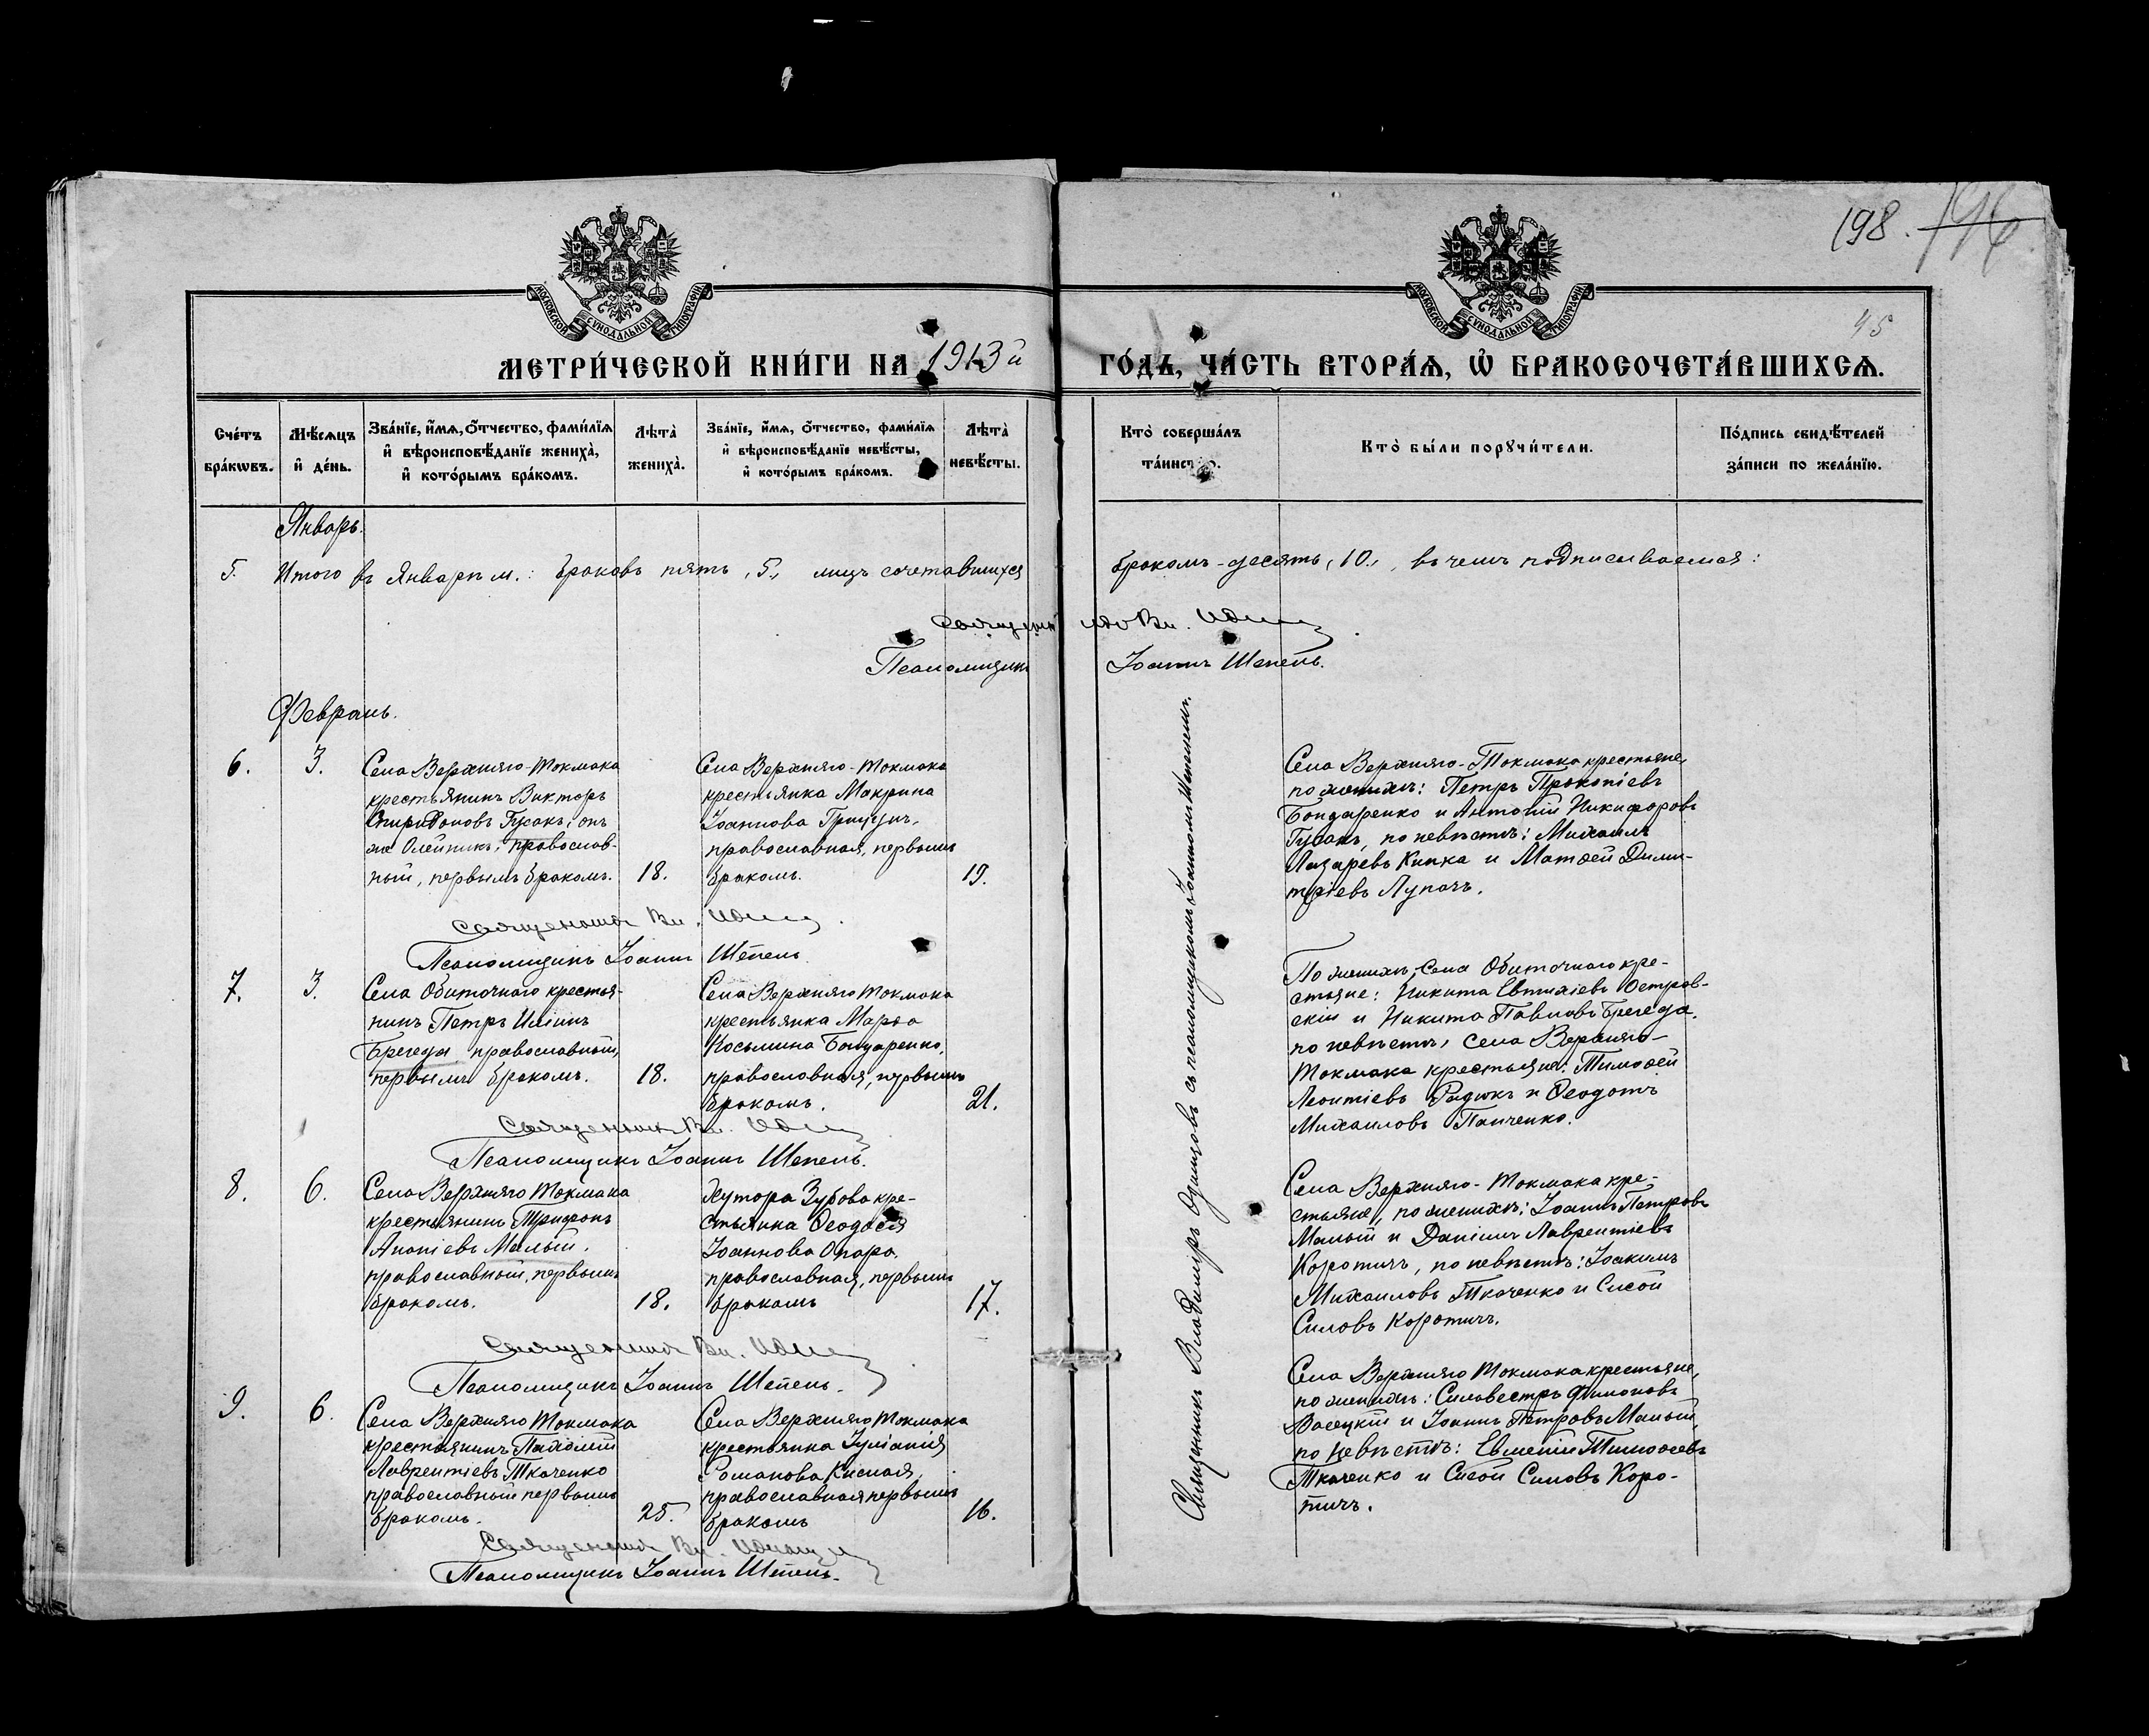 198. 196
45
МОСКОВСКОЙ СУНОДАЛЬНОЙ ТИПОГРАФІИ
МОСКОВСКОЙ СУНОДАЛЬНОЙ ТИПОГРАФІИ
МЕТРИ́ЧЕСКОЙ КНИ́ГИ НА 1913й ГО́ДЪ, ЧА́СТЬ ВТОРА́Ѧ, Ѽ БРАКОСОЧЕТА́ВШИХСѦ.
Сче́тъ
бра́кѡвъ.
Мѣ́сѧцъ
и҆ де́нь.
Зва́нїе, и҆́мѧ, ѻ҆́тчество, фами́лїѧ
и҆ вѣроисповѣ́данїе жениха̀,
и҆ кото́рымъ бра́комъ.
Лѣта̀
жениха̀.
Зва́нїе, и҆́мѧ, ѻ҆́тчество, фами́лїѧ
и҆ вѣроисповѣ́данїе невѣ́сты,
и҆ кото́рымъ бра́комъ.
Лѣта̀
невѣ́сты.
Кто̀ соверша́лъ
та́инство.
Кто̀ бы́ли порꙋчи́тели.
По́дпись свидѣ́телей
за́писи по жела́нїю.
Январь.
5. Итого въ Январѣ м.: браковъ пять, 5, лицъ сочетавшихся бракомъ - десять, 10, въ чемъ подписываемся:
Священникъ Вл.
Псаломщикъ Іоаннъ Шепель.
Февраль.
6. 3.
Села Верхняго-Токмака
крестьянинъ Викторъ
Спиридоновъ Гусакъ, онъ
же Олейникъ, православ-
ный, первымъ бракомъ. 18.
Села Верхняго-Токмака
крестьянка Макрина
Іоаннова Грицунъ,
православная, первымъ
бракомъ. 19.
Села Верхняго-Токмака крестьяне,
по женихѣ: Петръ Прокопіевъ
Бондаренко и Антоній Никифоровъ
Гусакъ, по невѣстѣ: Михаилъ
Лазаревъ Кипка и Матѳей Дими-
тріевъ Лупачъ.
Священникъ Вл.
Псаломщикъ Іоаннъ Шепель
7. 3.
Села Обиточнаго крестья-
нинъ Петръ Иліинъ
Брегеда, православный,
первымъ бракомъ. 18.
Села Верхняго Токмака
крестьянка Марѳа
Косьмина Бондаренко,
православная, первымъ
бракомъ. 21.
По женихѣ, села Обиточнаго кре-
стьяне: Никита Евтихіевъ Остров-
скій и Никита Павловъ Брегеда,
по невѣстѣ, села Верхняго-
Токмака крестьяне: Тимоѳей
Леонтіевъ Радюкъ и Ѳеодотъ
Михаиловъ Панченко.
Священникъ Вл.
Псаломщикъ Іоаннъ Шепель.
8. 6.
Села Верхняго Токмака
крестьянинъ Трифонъ
Ананіевъ Малый,
православный, первымъ
бракомъ. 18.
Хутора Зурова кре-
стьянка Ѳеодосія
Іоаннова Опара,
православная, первымъ
бракомъ 17.
Села Верхняго-Токмака кре-
стьяне, по женихѣ: Іоаннъ Петровъ
Малый и Даніилъ Лаврентіевъ
Коротичъ, по невѣстѣ: Іоакимъ
Михаиловъ Ткаченко и Сисой
Силовъ Коротичъ.
Священникъ Вл.
Псаломщикъ Іоаннъ Шепель.
9. 6.
Села Верхняго Токмака
крестьянинъ Пахомій
Лаврентіевъ Ткаченко
православный первымъ
бракомъ. 25.
Села Верхняго Токмака
крестьянка Іуліанія
Романова Кислая,
православная первымъ
бракомъ 16.
Села Верхняго Токмака крестьяне,
по женихѣ: Сильвестръ Филоновъ
Васецкій и Іоаннъ Петровъ Малый,
по невѣстѣ: Евменій Тимоѳеевъ
Ткаченко и Сисой Силовъ Коро-
тичъ.
Священникъ Вл.
Псаломщикъ Іоаннъ Шепель.
Священникъ Владиміръ Одинцовъ съ псаломщикомъ Іоанномъ Шепелемъ.